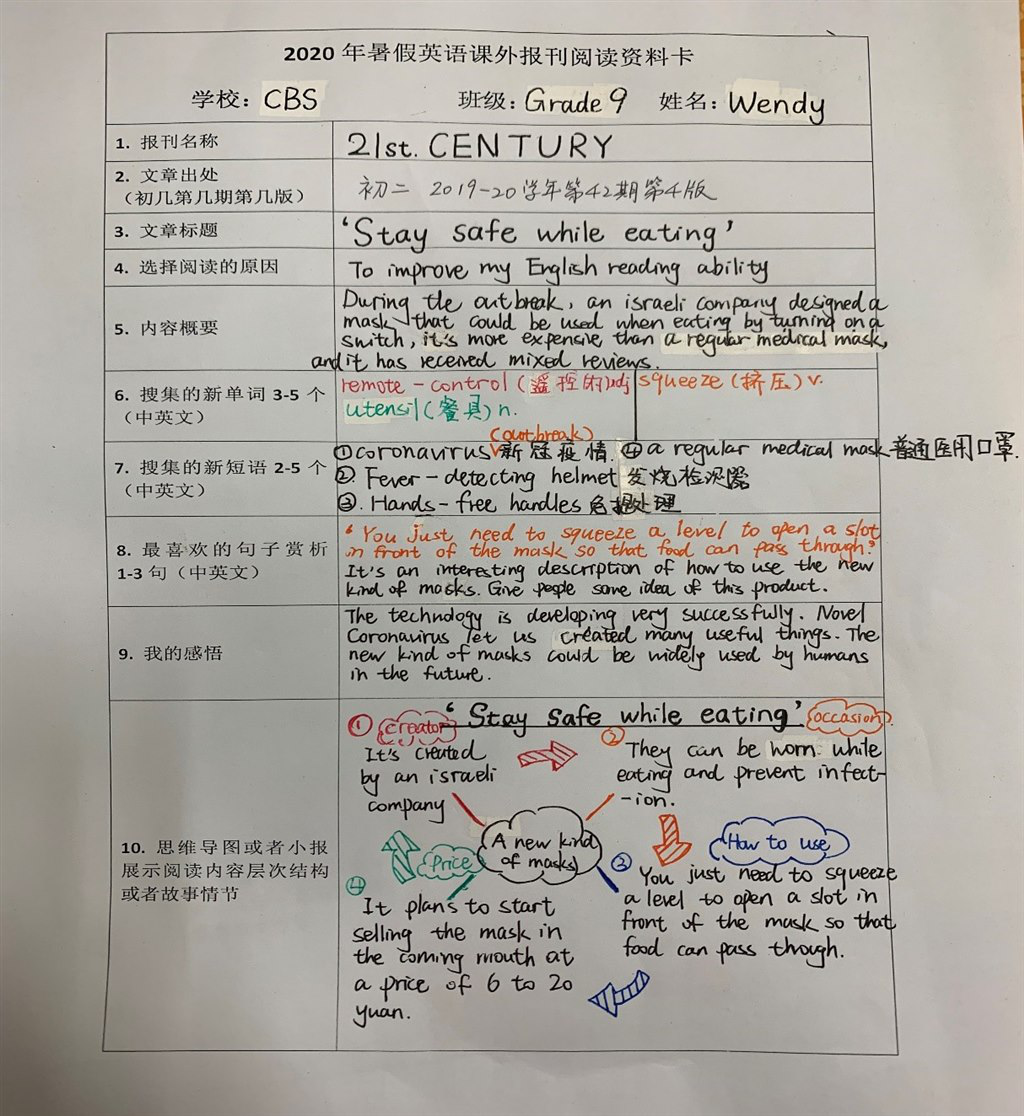 2020 年暑假英语课外报刊阅读资料卡
学校: CBS 班级: Grade 9 姓名: Wendy
1. 报刊名称
21st. CENTURY
2. 文章出处
（初几第几期第几版）
初二 2019-20学年第42期第4版
3. 文章标题
‘Stay safe while eating’
4. 选择阅读的原因
To improve my English reading ability
5. 内容概要
During the outbreak, an israeli company designed a
mask that could be used when eating by turning on a
switch, it's more expensive than a regular medical mask,
and it has received mixed reviews.
6. 搜集的新单词 3-5 个
（中英文）
remote-control (遥控的) adj squeeze (挤压) v.
utensil (餐具) n.
7. 搜集的新短语 2-5 个
（中英文）
(outbreak)
① coronavirus 新冠疫情. ④ a regular medical mask 普通医用口罩.
②. Fever-detecting helmet 发烧检测器
③. Hands-free handles 免提处理
8. 最喜欢的句子赏析
1-3 句（中英文）
‘You just need to squeeze a level to open a slot
in front of the mask so that food can pass through.’
It's an interesting description of how to use the new
kind of masks. Give people some idea of this product.
9. 我的感悟
The technology is developing very successfully. Novel
Coronavirus let us created many useful things. The
new kind of masks could be widely used by humans
in the future.
10. 思维导图或者小报
展示阅读内容层次结构
或者故事情节
‘Stay safe while eating’
① creator
It's created
by an israeli
company
② occasion
They can be worn while
eating and prevent infect-
-ion.
A new kind
of masks
③ How to use
You just need to squeeze
a level to open a slot in
front of the mask so that
food can pass though.
④ Price
It plans to start
selling the mask in
the coming mouth at
a price of 6 to 20
yuan.